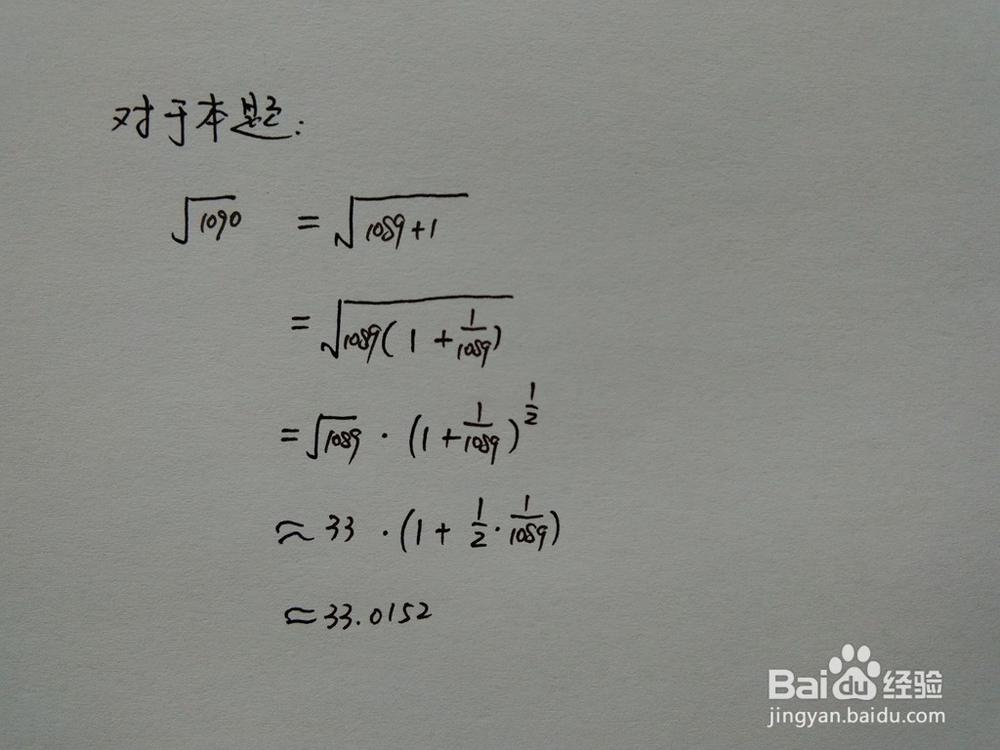 对于本题:
√1090 = √(1089+1)
= √(1089(1+1/1089))
= √1089 · (1+1/1089)^(1/2)
≈ 33 · (1+ 1/2 · 1/1089)
≈ 33.0152
Baidu 经验
jingyan.baidu.com